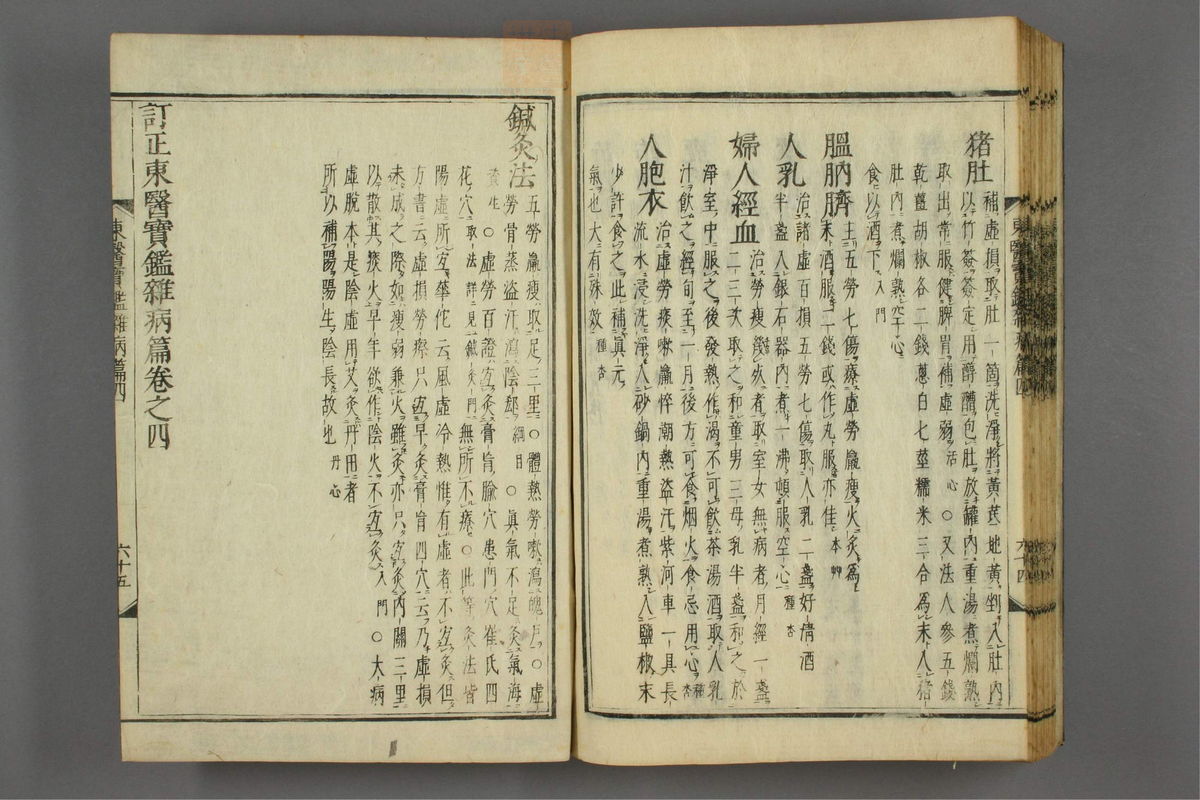 猪肚
補虛損取肚一箇洗淨將黃芪地黃剉入肚內
以竹簽簽定用醇醋包肚放罐內重湯煮爛熟
取出常服健脾胃補虛弱活心○又法人參五錢
乾薑胡椒各二錢葱白七莖糯米三合爲末入猪
肚內煮爛熟空心
食以酒下入門
膃肭臍
主五勞七傷療虛勞羸瘦火灸爲
末酒服二錢或作丸服亦佳本艸
人乳
治諸虛百損五勞七傷取人乳二盞好淸酒
半盞入銀石器內煮一沸頓服空心種杏
婦人經血
治勞瘦
者取室女無病者月經一盞
二三次取之和童男三母乳半盞和之於
淨室中服之後發熱作渴不可飮茶湯酒取人乳
汁飮之經旬至一月後方可食烟火食忌用心種杏
人胞衣
治虛勞痰嗽羸悴潮熱盜汗紫河車一具長
流水浸洗淨入砂鍋內重湯煮熟入鹽椒末
少許食之此補眞元
氣也大有殊效種杏
東醫寶鑑雜病篇四
六十四
鍼灸法
五勞羸瘦取足三里○體熱勞嗽瀉魄戶○虛
勞骨蒸盜汗瀉陰郄綱目○眞氣不足灸氣海
資生○虛勞百證宜灸膏肓腧穴患門穴崔氏四
花穴取法詳見鍼灸門無所不療○此等灸法皆
陽虛所宜華佗云風虛冷熱惟有虛者不宜灸但
方書云虛損勞瘵只宜早灸膏肓四穴云乃虛損
未成之際如瘦弱兼火雖灸亦只宜灸內關三里
以散其痰火早年欲作陰火不宜灸入門○大病
虛脫本是陰虛用艾灸丹田者
所以補陽陽生陰長故也丹心
訂正東醫寶鑑雜病篇卷之四
東醫寶鑑雜病篇四
六十五